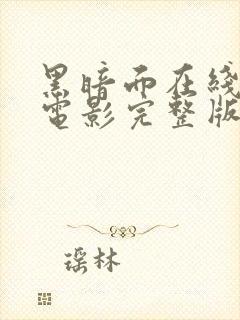 黑暗而在线
电影完整版
瑶林